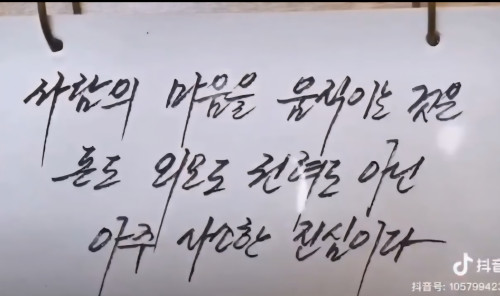 사람의 마음을 움직이는 것은
돈도 외모도 권력도 아닌
아주 사소한 진심이다
抖音
抖音号: 105799423